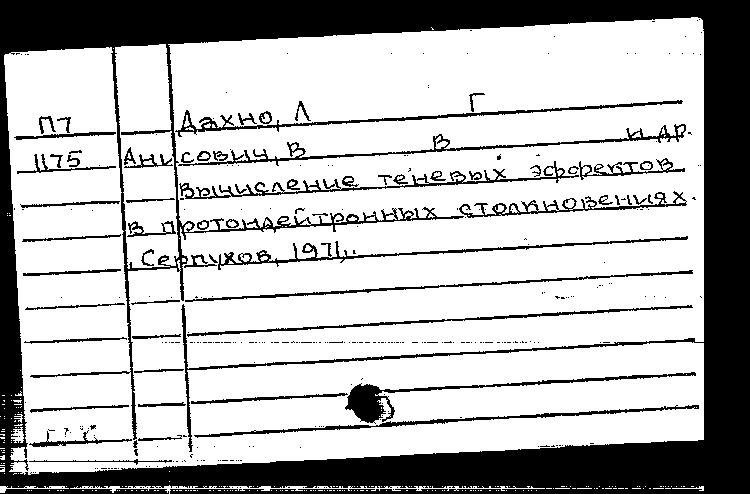 П7 Дахно, Л Г
1175 Анисович, В В и др.
Вычисление теневых эффектов
в протондейтронных столкновениях.
Серпухов, 1971,.